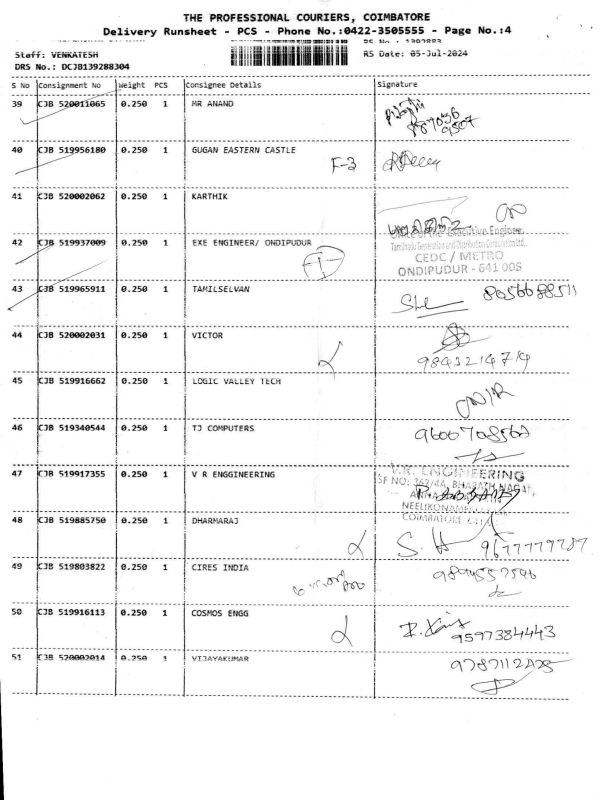 THE PROFESSIONAL COURIERS, COIMBATORE
Delivery Runsheet - PCS - Phone No.:0422-3505555 - Page No.:4
RS No.: 1302883
Staff: VENKATESH
RS Date: 05-Jul-2024
DRS No.: DCJB139288304
S No Consignment No Weight PCS Consignee Details Signature
39 CJB 520011065 0.250 1 MR ANAND
40 CJB 519956180 0.250 1 GUGAN EASTERN CASTLE F-3
41 CJB 520002062 0.250 1 KARTHIK
42 CJB 519937009 0.250 1 EXE ENGINEER/ ONDIPUDUR
Office of the Executive Engineer
Tamilnadu Generation and Distribution Corporation Ltd.,
CEDC / METRO
ONDIPUDUR - 641 005
43 CJB 519965911 0.250 1 TAMILSELVAN 8056688511
44 CJB 520002031 0.250 1 VICTOR
9843214714
45 CJB 519916662 0.250 1 LOGIC VALLEY TECH
46 CJB 519340544 0.250 1 TJ COMPUTERS
47 CJB 519917355 0.250 1 V R ENGGINEERING
V.R. ENGINEERING
SF NO: 362/4A, BHARATH NAGAR,
COIMBATORE
48 CJB 519885750 0.250 1 DHARMARAJ 9677779787
49 CJB 519803822 0.250 1 CIRES INDIA
50 CJB 519916113 0.250 1 COSMOS ENGG
9597384443
51 CJB 520002014 0.250 1 VIJAYAKUMAR